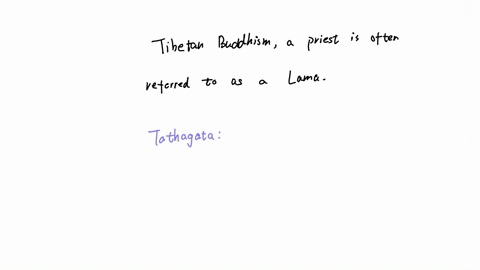 Tibetan Buddhism, a priest is often
referred to as a Lama.
Tathagata: